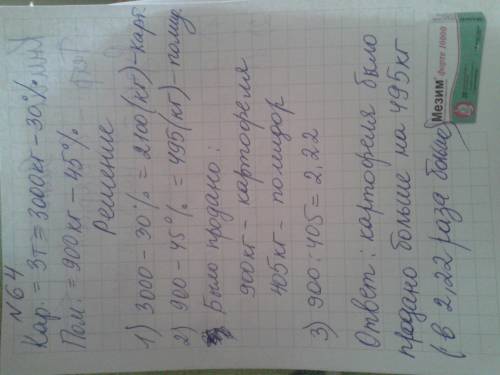 N64
Кар. = 3т = 3000кг - 30%
Пом. = 900кг - 45%
Решение
1) 3000 - 30% = 2100(кг) - карт.
2) 900 - 45% = 495(кг) - поми.
Было продано:
900кг - картофеля
405кг - помидор
3) 900:405 = 2,22
Ответ: картофеля было
продано больше на 495кг
(в 2,22 раза больше)
Мезим форте 10000